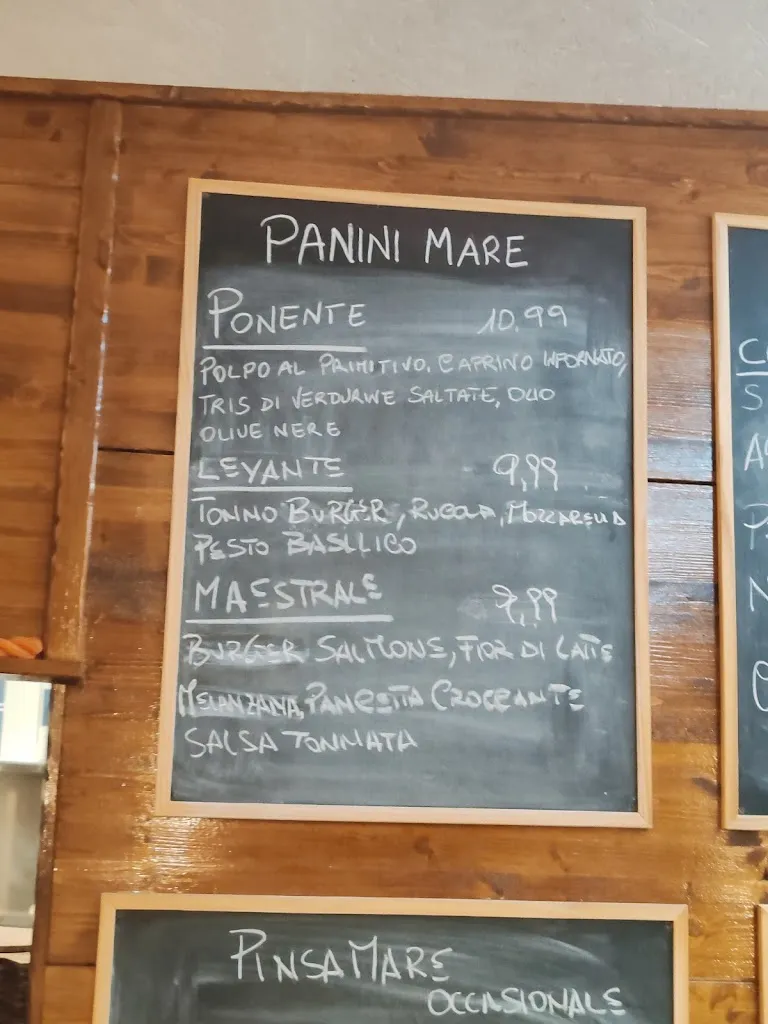 PANINI MARE
PONENTE 10.99
POLPO AL PRIMITIVO. CAPRINO INFORNATO,
TRIS DI VERDURINE SALTATE, OLIO
OLIVE NERE
LEVANTE 9,99
TONNO BURGER, RUCOLA, MOZZARELLA
PESTO BASILICO
MAESTRALE 9,99
BURGER SALMONE, FIOR DI LATTE
MELANZANA, PANCETTA CROCCANTE
SALSA TONNATA
PINSA MARE
OCCASIONALE